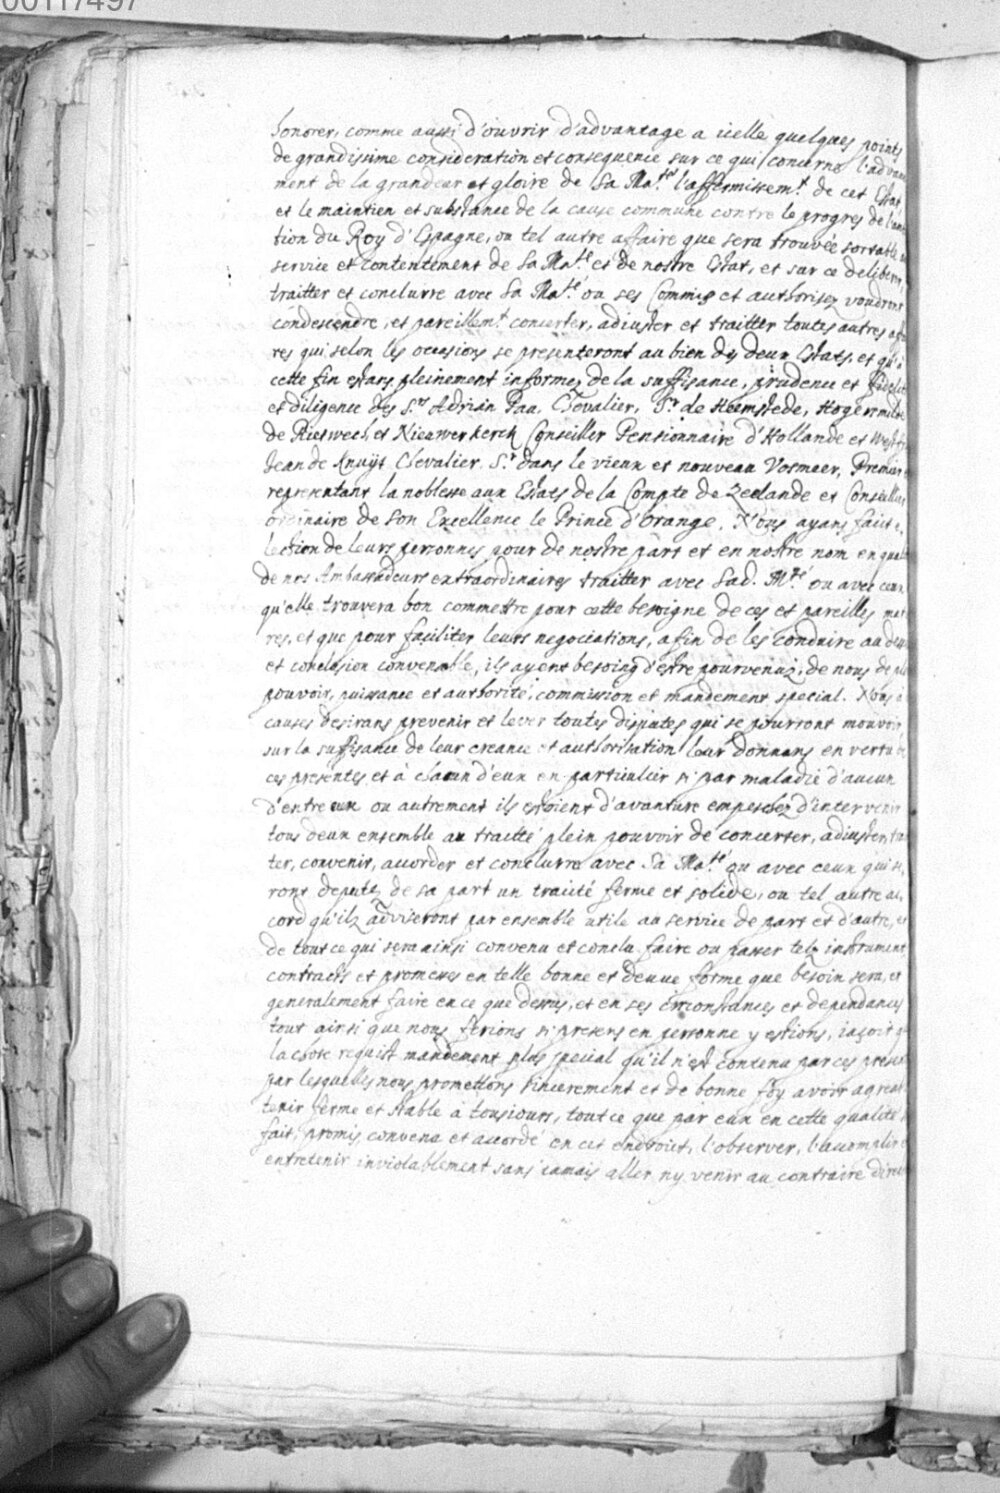 00117497
honorer, comme aussi d'ouvrir d'advantage a icelle quelques points
de grandissime consideration et consequence sur ce qui concerne l'advan
ment de la grandeur et gloire de Sa Ma.té l'affermissem.t de cet Estat
et le maintien et substance de la cause commune contre le progres de l'am
tion du Roy d'Espagne, ou tel autre affaire que sera trouvée sortable
service et contentement de Sa Ma.té et de nostre Estat, et sur ce deliberer,
traitter et conclurre avec Sa Ma.té ou ses Commis et authorisez voudront
condescendre, et pareillem.t concerter, adiuster et traitter toutes autres affa
res qui selon les occasions se presenteront au bien des deux Estats, et qu'à
cette fin estans pleinement informez de la suffisance, prudence et fidelité
et diligence des S.rs Adrian Paa, Chevalier, S.r de Heemstede, Hogersmilde
de Rietwech, et Nieuwerkerck Conseiller Pensionnaire d'Hollande et West
Jean de Knuyt Chevalier S.r dans le vieux et nouveau Vosmeer, Premier
representant la noblesse aux Estats de la Compte de Zeelande et Conseiller
ordinaire de Son Excellence le Prince d'Orange, Nous ayans fait e
lection de leurs personnes pour de nostre part et en nostre nom en quali
de nos Ambassadeurs extraordinaires traitter avec Sad. M.té ou avec ceux
qu'elle trouvera bon commettre pour cette besoigne de ces et pareilles mat
res, et que pour faciliter leurs negociations, afin de les conduire au deu
et conclusion convenable, ils ayent besoing d'estre pourvenuz de nous de
pouvoir, puissance et authorité, commission et mandement special. Nous
causes desirans prevenir et lever toutes disputes qui se pourront mouvoir
sur la suffisance de leur creance et authorisation leur donnans en vertu de
ces presentes et à chacun d'eux en particulier si par maladie d'aucun
d'entre eux ou autrement ils estoient d'avanture empeschez d'intervenir
tous d'eux ensemble au traitté plein pouvoir de concerter, adiuster, trai
ter, convenir, accorder et conclurre avec Sa Ma.té ou avec ceux qui se
ront deputez de sa part un traitté ferme et solide, ou tel autre ac
cord qu'ilz adviseront par ensemble utile au service de part et d'autre, et
de tout ce qui sera ainsi convenu et conclu faire ou passer telz instrument
contracts et promesses en telle bonne et deuue forme que besoin sera, et
generalement faire en ce que dessus, et en ses circonstances et dependances
tout ainsi que nous ferions si presens en personne y estions, iaçoit q
la chose requist mandement plus special qu'il n'est contenu par ces presen
par lesquelles nous promettons sincerement et de bonne foy avoir agreab
tenir ferme et stable à tousiours, tout ce que par eux en cette qualité
fait, promis, convenu et accordé en cet endroict, l'observer, l'accomplir
entretenir inviolablement sans iamais aller ny venir au contraire direc